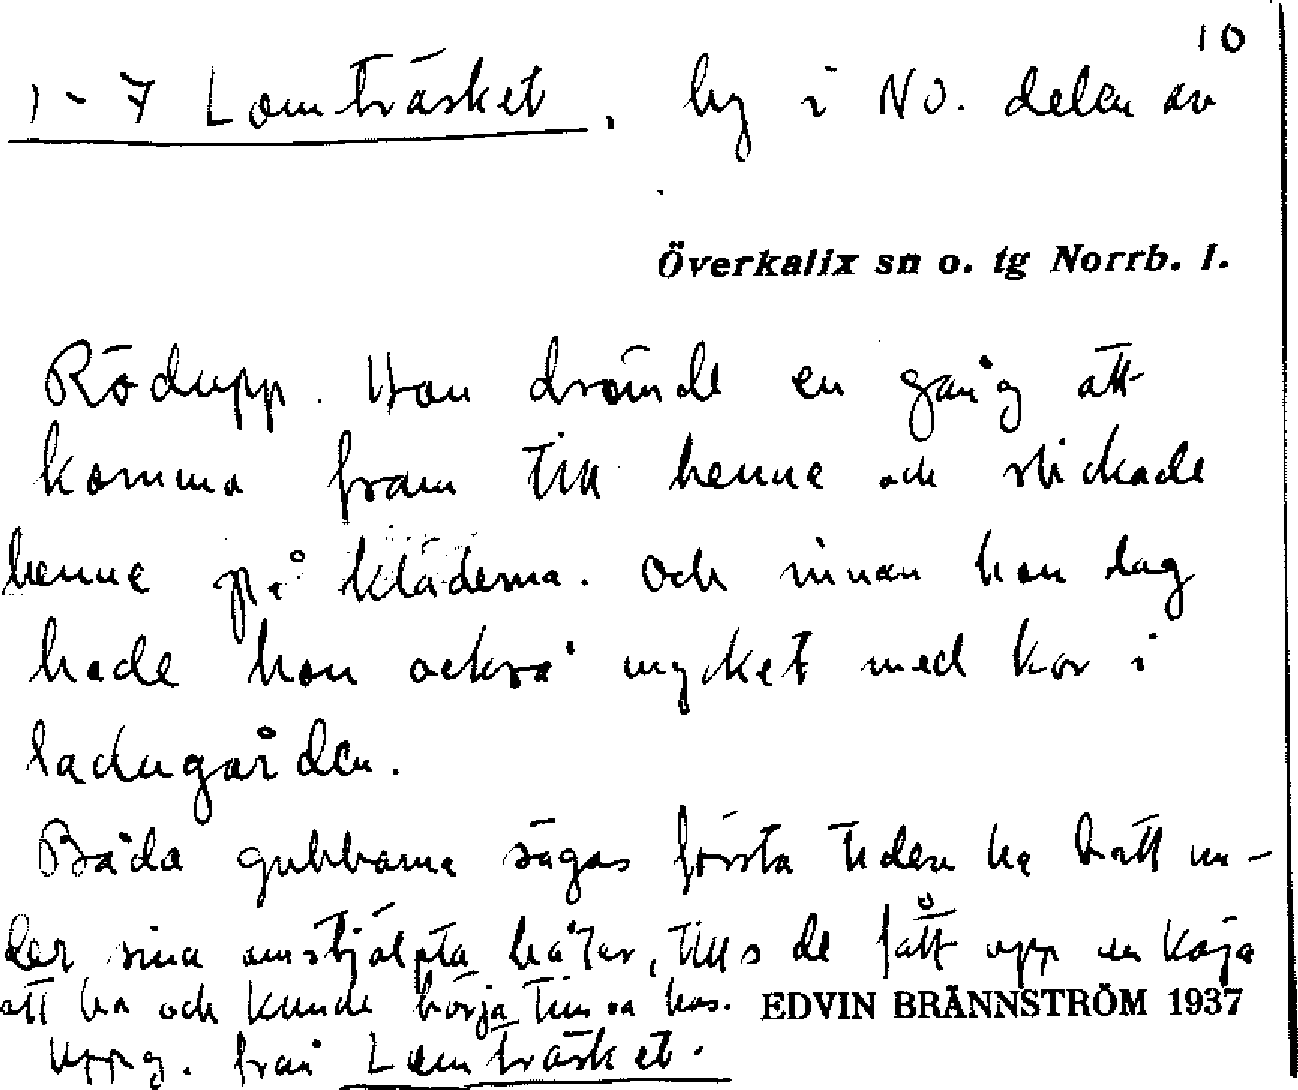 10
1-7 Lomträsket, by i NO. delen av
Överkalix sn o. tg Norrb. l.
Rödupp. Han drömde en gång att
komma fram till henne och stickade
henne på kläderna. Och innan han dog
hade han också mycket med kor i
ladugården.
Båda gubbarna sägas första tiden ha bott un-
der sina omstjälpta båtar, tills de fått upp en koja
att bo och kunde börja timra hus. EDVIN BRÄNNSTRÖM 1937
Uppg. från Lomträsket.